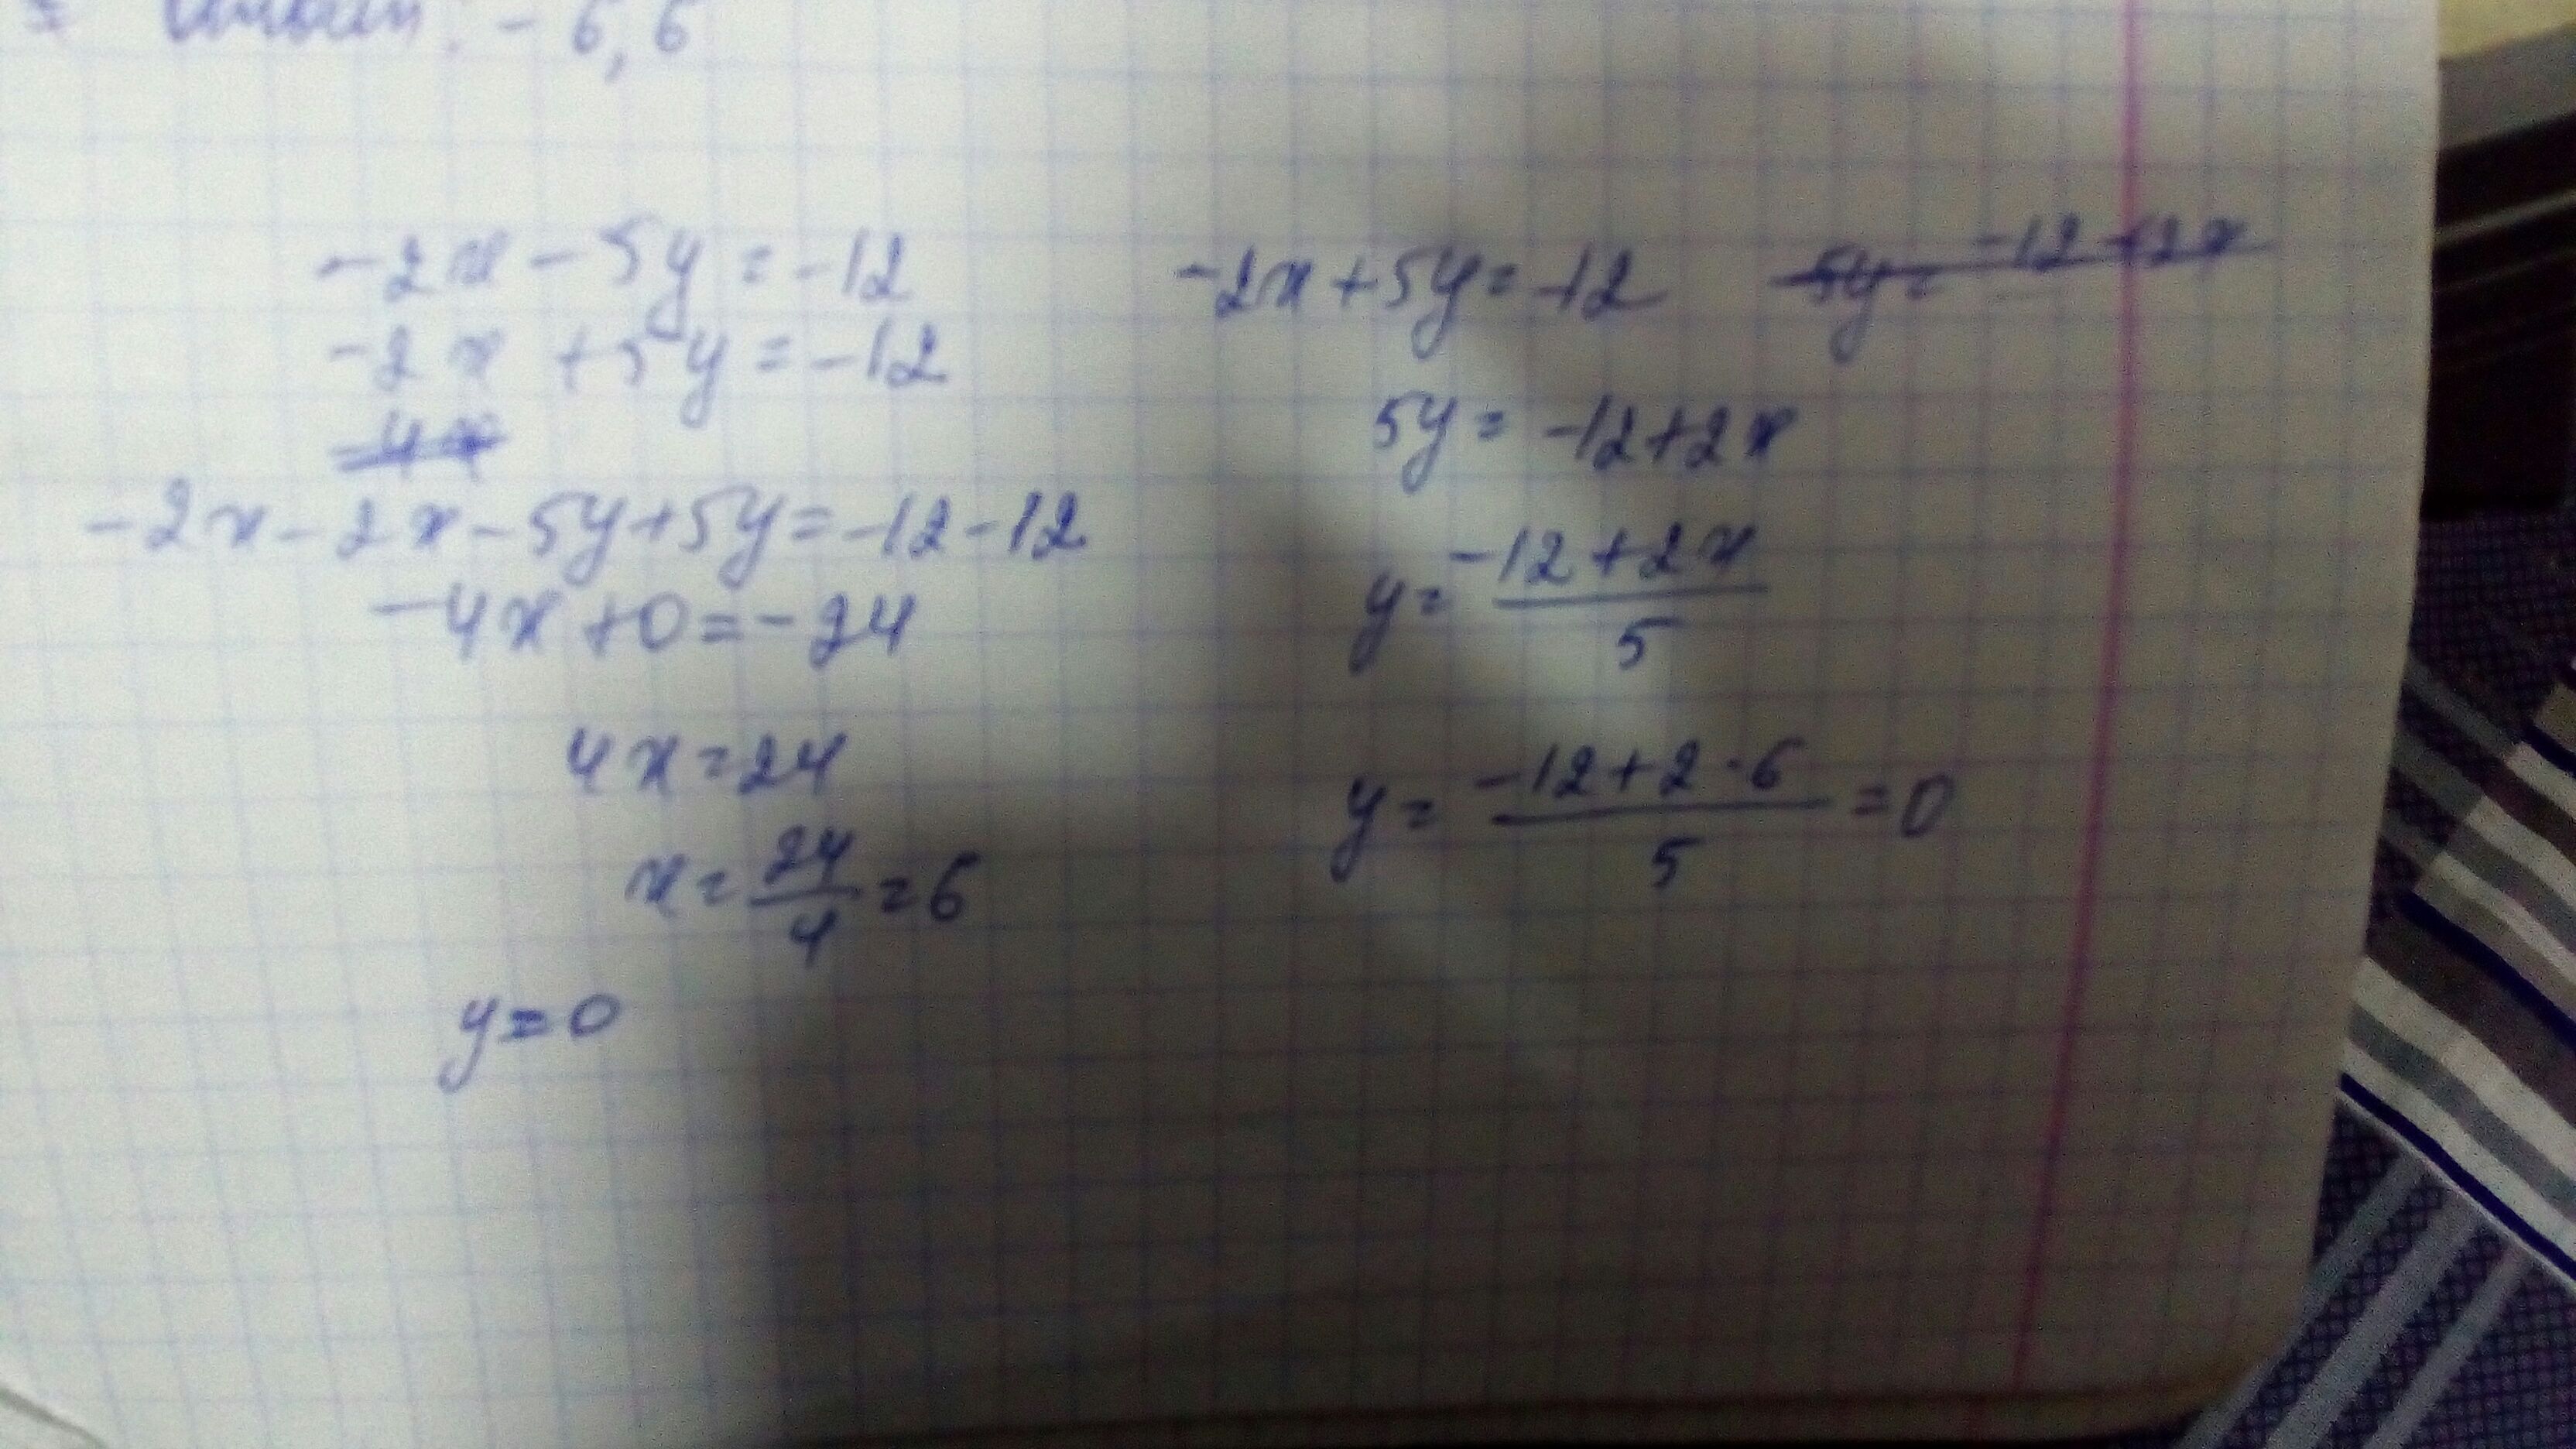 - 6,6
-2x - 5y = -12
-2x + 5y = -12
4x
-2x - 2x - 5y + 5y = -12 - 12
-4x + 0 = -24
4x = 24
x = 24/4 = 6
y = 0
-2x + 5y = -12
5y = -12 + 2x
5y = -12 + 2x
y = -12 + 2x / 5
y = -12 + 2 · 6 / 5 = 0